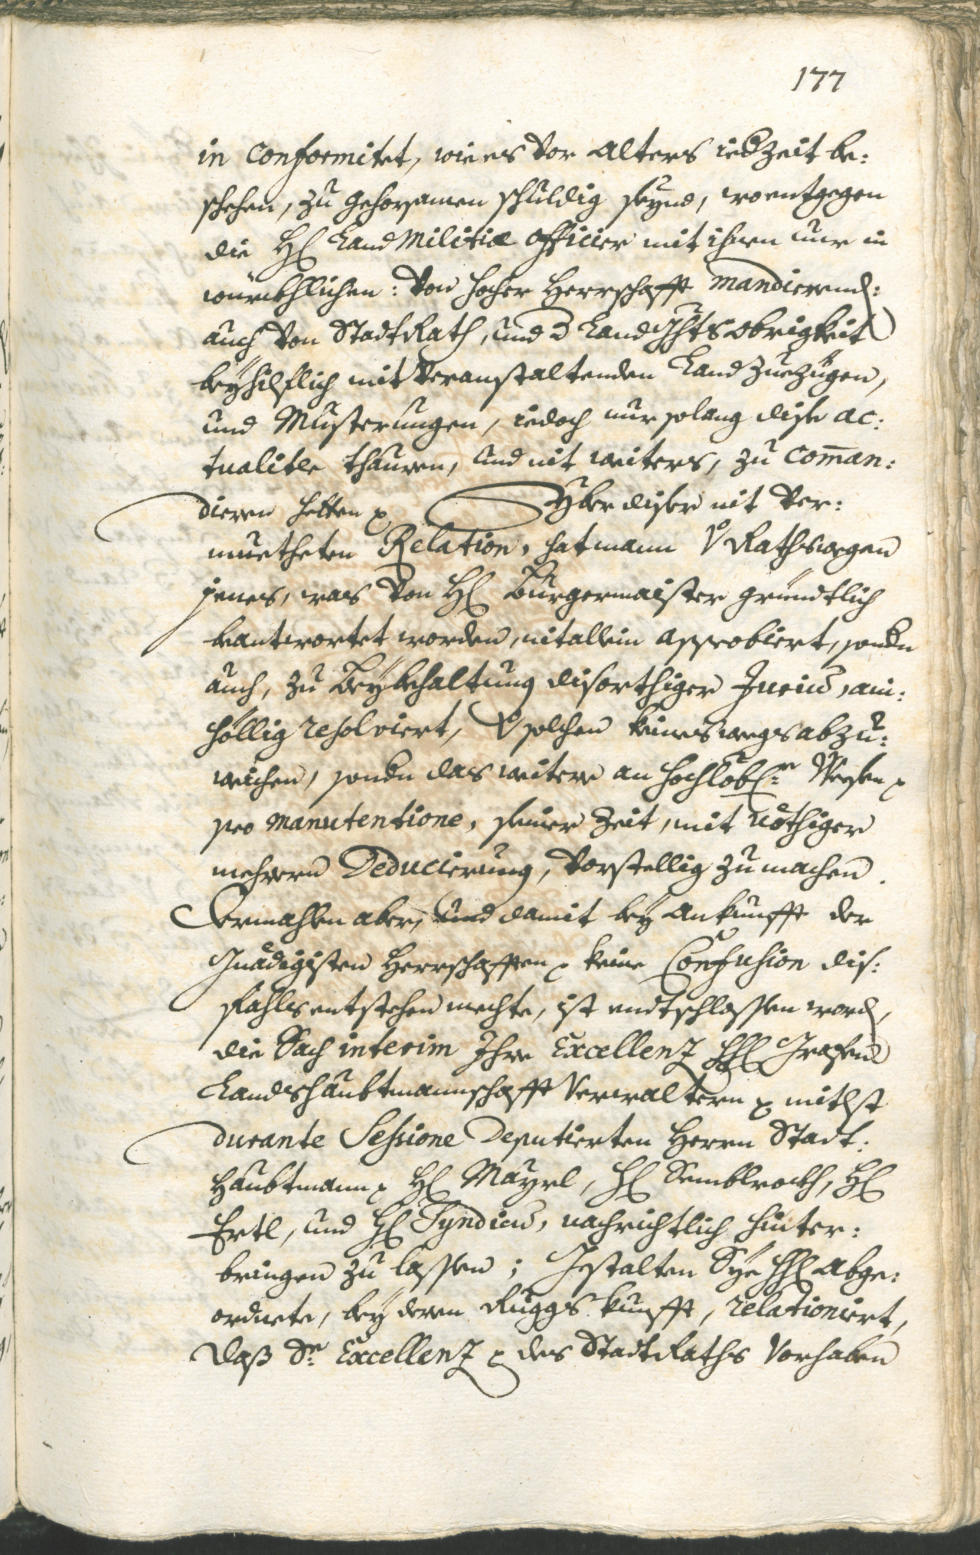 177
in conformitet, wie es vor alters iedZeit be:
schehen, zu gehorsamen schuldig seynd, woentgegen
die H: Land Militiæ officier mit ihnen nur in
würckhlichen: von hocher Herrschafft mandierend:
auch von StadtRath, und d LandGhtsobrigkeit
beyhilflich mit veranstaltenden Land Zuezügen,
und Musterungen, iedoch nur solang dise ac:
tualitæ thauren, und nit weiters, zu com̄an:
dieren hetten
Yber diser nit ver:
muetheten Relation, hat mann V Rathswegen
jenes, was von H: Burgermaister gründtlich
beantwortet worden, nit allein approbiert, sondn
auch, zu Beybehaltung disorthiger Jurium, ain:
höllig resolviert, V solchen keineswegs abzu:
weichen, sondn das weitere an hochlöbl: Wesen
pro manutentione, seiner Zeit, mit nöthiger
mehrern Deducierung, vorstellig zu machen.
Dermahlen aber, und damit bey Ankunfft der
Gnädigisten Herrschafften keine Confusion dis:
fahls entstehen mechte, ist endtschlossen word,
die Sach interim Ihro Excellenz HH: Grafen
Landshaubtmannschafft Verwaltern mitlst
durante Sessione Deputierten Herrn Stadt:
Haubtmann H: Mayrl, H: Semblrockh, H:
Ertl, und H: Syndicus, nachrichtlich hinter:
bringen zu lassen; Gestalten Sye HH: Abge:
ordnete, bey deren Ruggkunfft, relationiert,
daß Sr Excellenz des StadtRaths Vorhaben